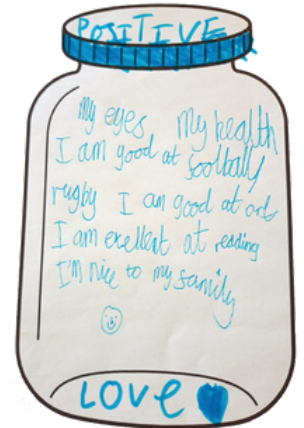 POSITIVE
My eyes My health
I am good at football/
rugby I am good at arts
I am exellent at reading
I'm nice to my family
LOVE